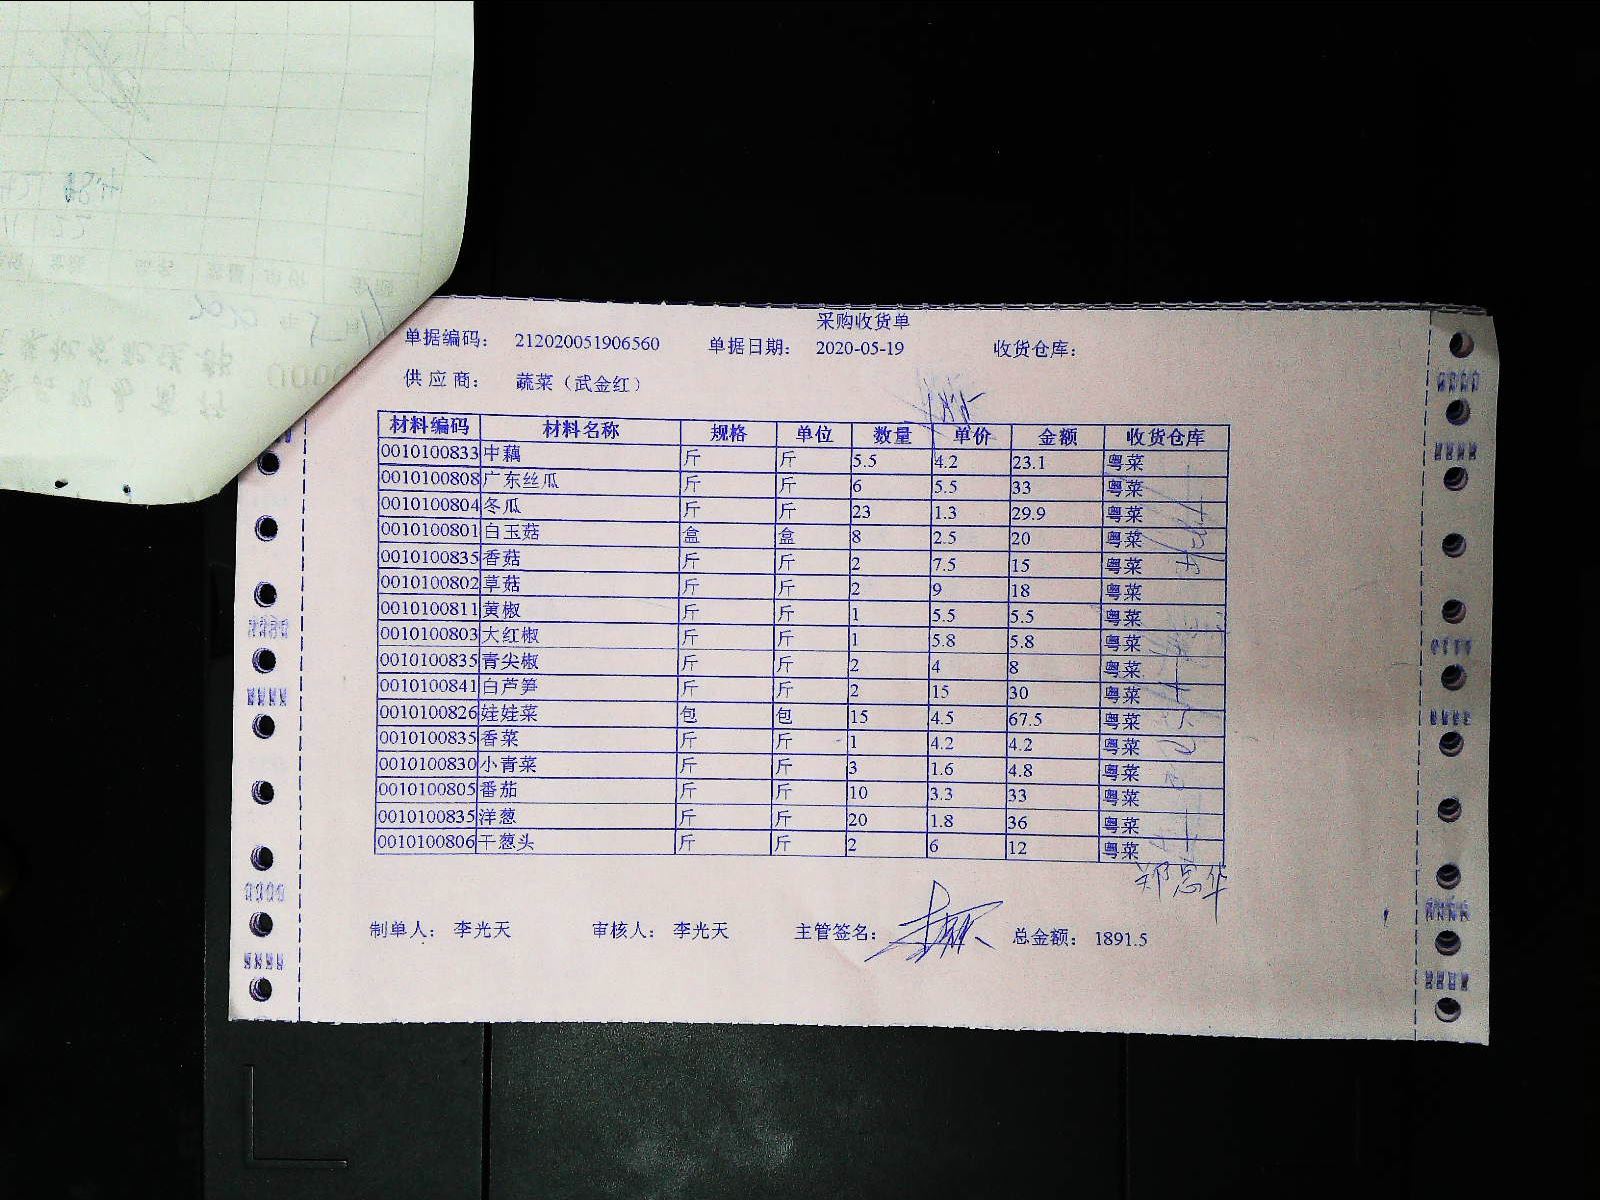 采购收货单
单据编码： 212020051906560 单据日期： 2020-05-19 收货仓库：
供应商： 蔬菜（武金红）
材料编码 材料名称 规格 单位 数量 单价 金额 收货仓库
0010100833 中藕 斤 斤 5.5 4.2 23.1 粤菜
0010100808 广东丝瓜 斤 斤 6 5.5 33 粤菜
0010100804 冬瓜 斤 斤 23 1.3 29.9 粤菜
0010100801 白玉菇 盒 盒 8 2.5 20 粤菜
0010100835 香菇 斤 斤 2 7.5 15 粤菜
0010100802 草菇 斤 斤 2 9 18 粤菜
0010100811 黄椒 斤 斤 1 5.5 5.5 粤菜
0010100803 大红椒 斤 斤 1 5.8 5.8 粤菜
0010100835 青尖椒 斤 斤 2 4 8 粤菜
0010100841 白芦笋 斤 斤 2 15 30 粤菜
0010100826 娃娃菜 包 包 15 4.5 67.5 粤菜
0010100835 香菜 斤 斤 1 4.2 4.2 粤菜
0010100830 小青菜 斤 斤 3 1.6 4.8 粤菜
0010100805 番茄 斤 斤 10 3.3 33 粤菜
0010100835 洋葱 斤 斤 20 1.8 36 粤菜
0010100806 干葱头 斤 斤 2 6 12 粤菜
郑思华
制单人： 李光天 审核人： 李光天 主管签名： 总金额： 1891.5